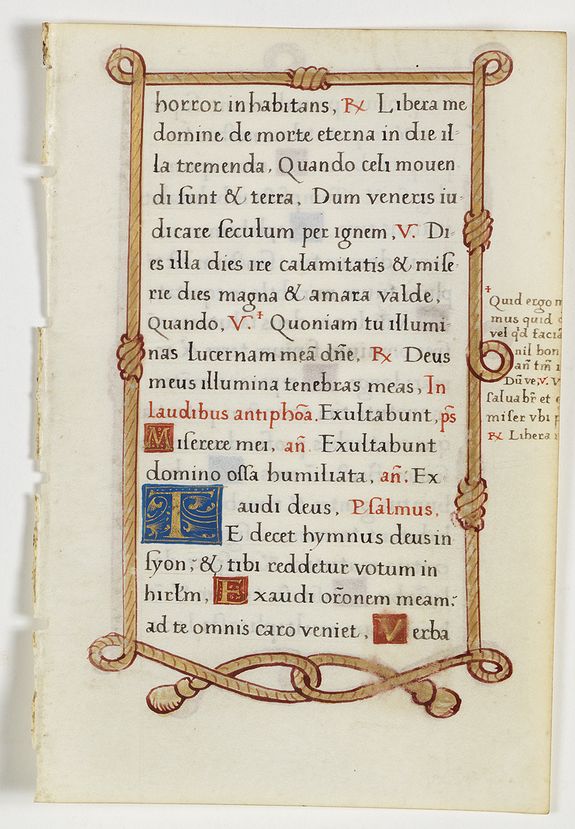 horror inhabitans, ℞ Libera me
domine de morte eterna in die il-
la tremenda, Quando celi mouen
di sunt & terra, Dum veneris iu-
dicare seculum per ignem, V. Di-
es illa dies ire calamitatis & mise-
rie dies magna & amara valde,
Quando, V.⁺ Quoniam tu illumi-
nas lucernam meā dn̄e, ℞ Deus
meus illumina tenebras meas, In
laudibus antiphōa. Exultabunt, p̄s
Miserere mei, an̄. Exultabunt
domino ossa humiliata, an̄: Ex
audi deus, Psalmus,
TE decet hymnus deus in
syon, & tibi reddetur votum in
hirl'm, Exaudi or̄onem meam:
ad te omnis caro veniet, Verba
+
Quid ergo
mus quid
vel qd faciā
nil bon
an̄ tm̄
Dū ve, V. V
saluabr̄ et
miser vbi
℞ Libera